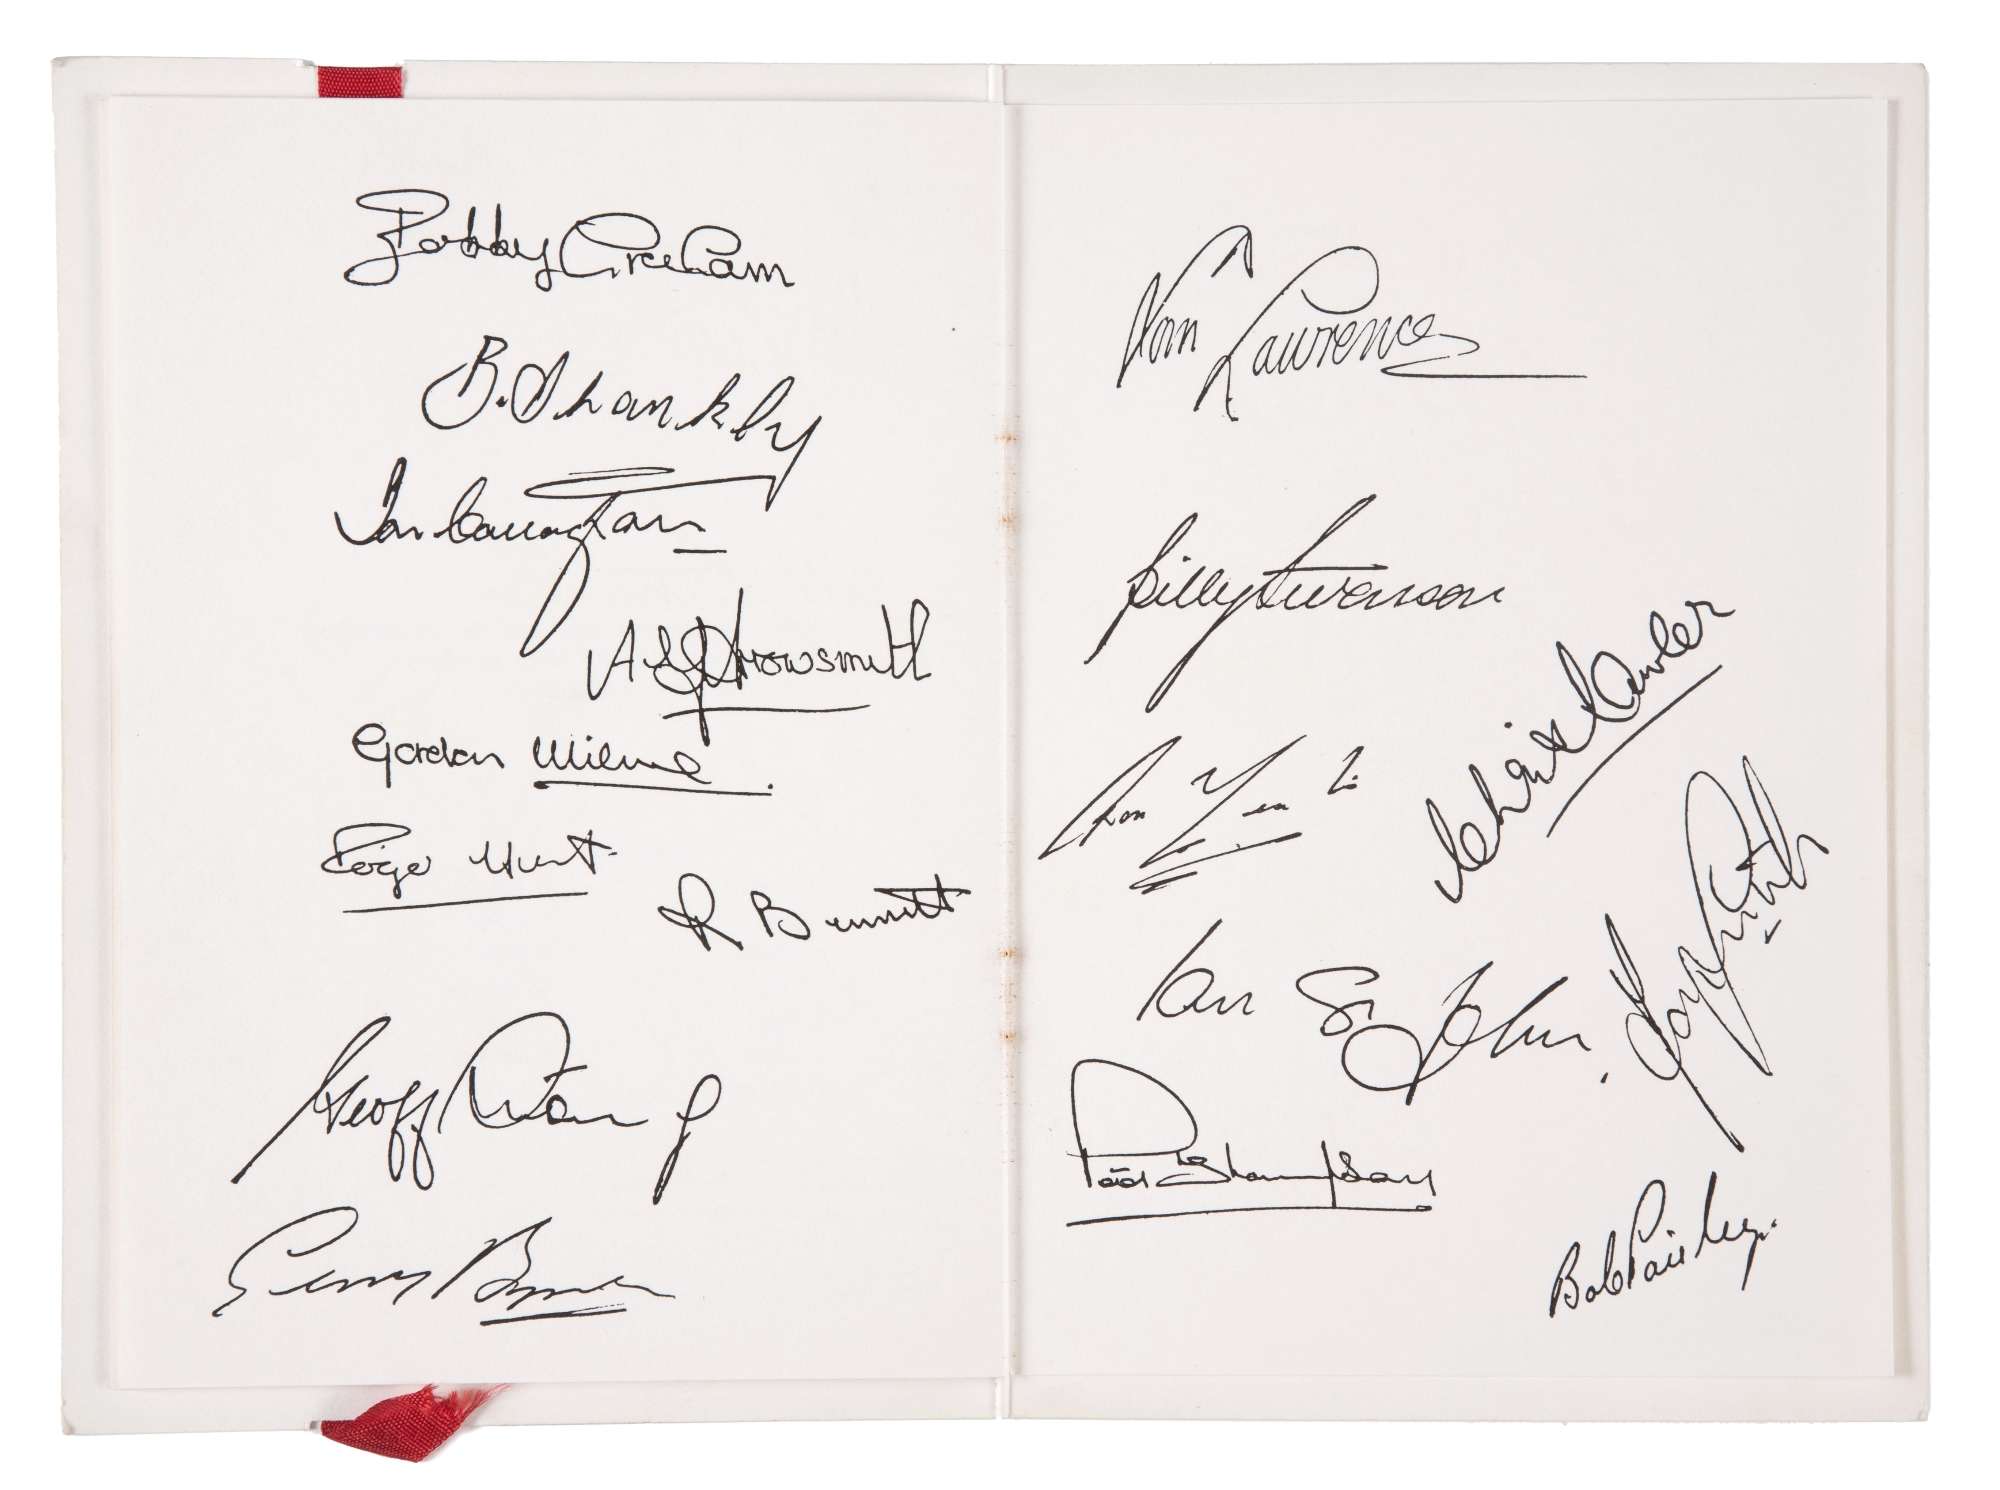 Bobby Graham
B. Shankly
Ian Callaghan
A Arrowsmith
Gordon Milne
Roger Hunt
R Bennett
Geoff Strong
Gerry Byrne
Tom Lawrence
Billy Stevenson
Ron Yeats
Chris Lawler
Ian St John
Tommy Smith
Peter Thompson
Bob Paisley